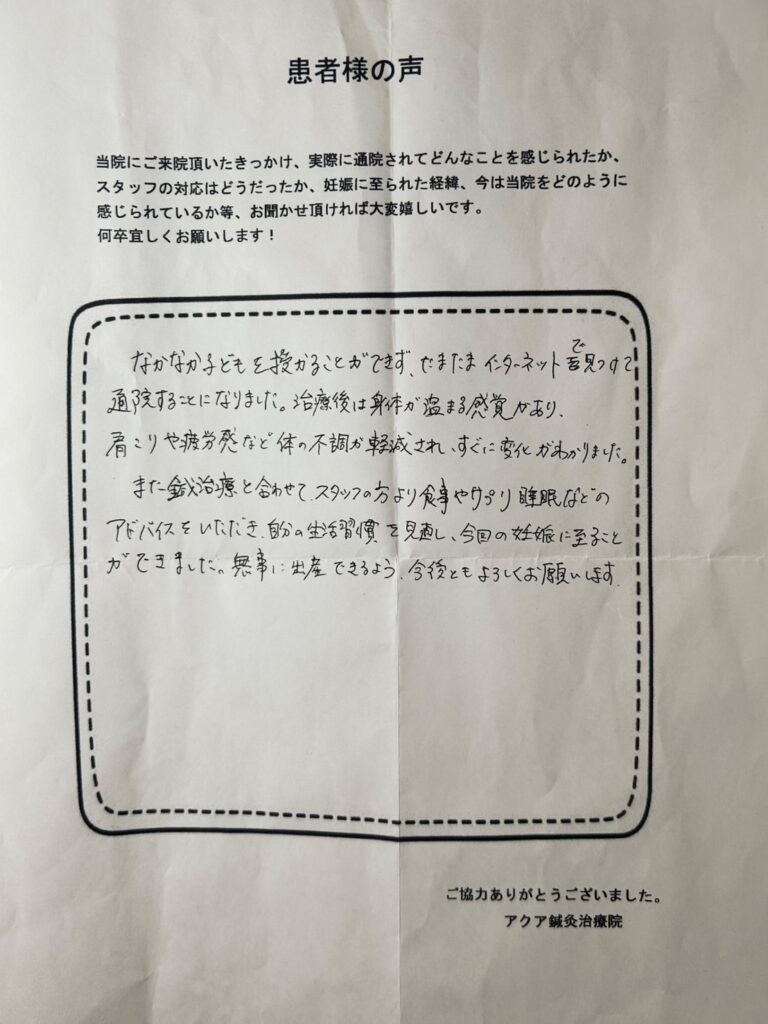 患者様の声
当院にご来院頂いたきっかけ、実際に通院されてどんなことを感じられたか、
スタッフの対応はどうだったか、妊娠に至られた経緯、今は当院をどのように
感じられているか等、お聞かせ頂ければ大変嬉しいです。
何卒宜しくお願いします！
なかなか子どもを授かることができず、たまたまインターネットで見つけて
通院することになりました。治療後は身体が温まる感覚があり、
肩こりや疲労感など体の不調が軽減され、すぐに変化がわかりました。
また鍼治療と合わせて、スタッフの方より食事やサプリ睡眠などの
アドバイスをいただき、自分の生活習慣を見直し、今回の妊娠に至ること
ができました。無事に出産できるよう、今後ともよろしくお願いします。
ご協力ありがとうございました。
アクア鍼灸治療院